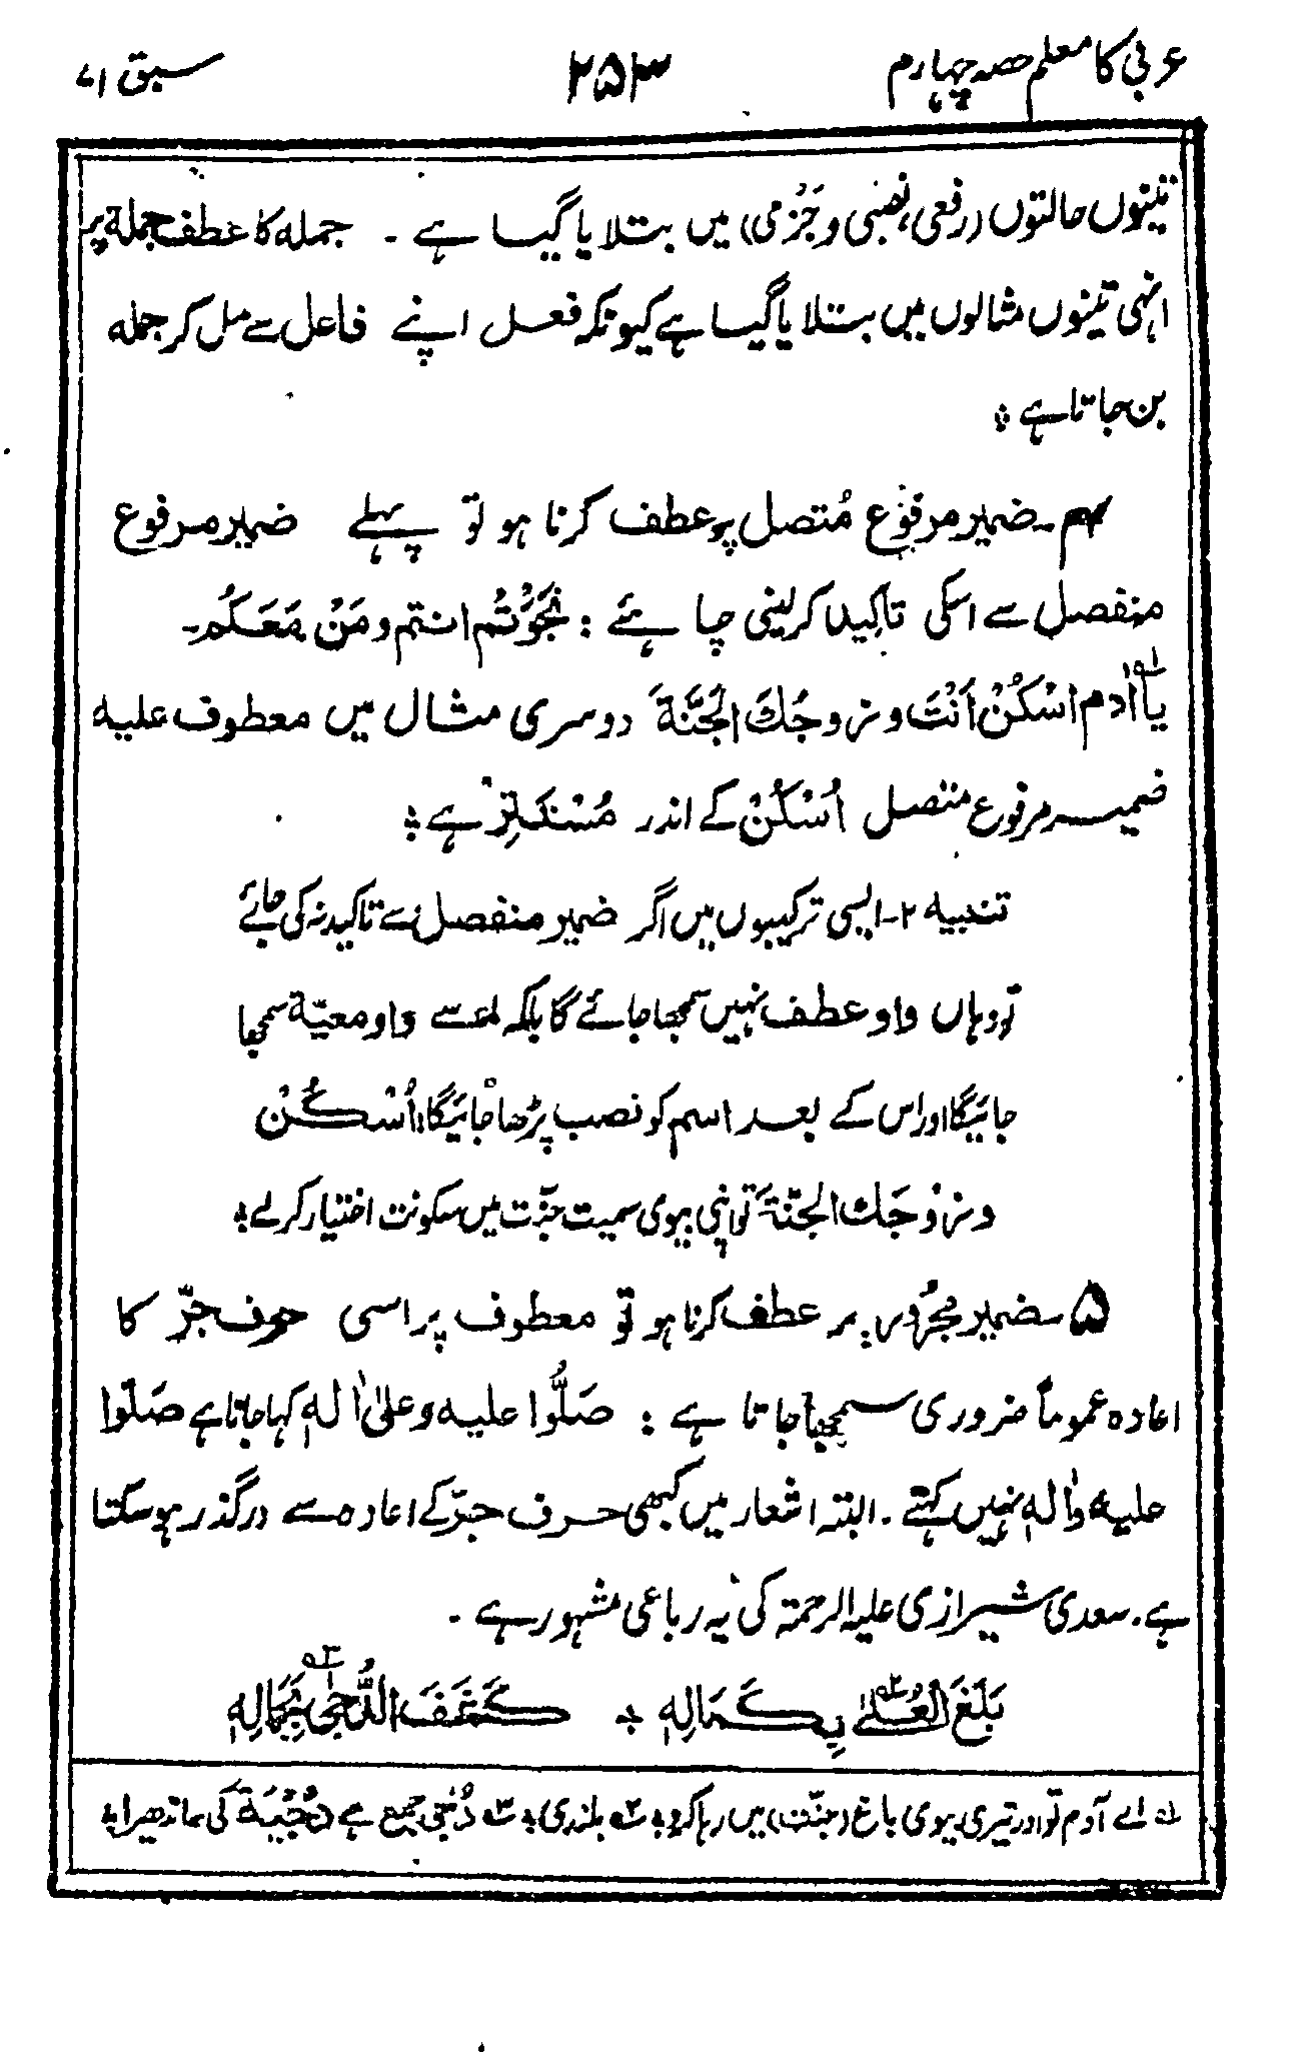 عربی کا معلم حصہ چہارم ۲۵۳ سبق ۷۱
تینوں حالتوں (رفعی، نصبی و جَزْمی) میں بتلایا گیا ہے ۔ جملہ کا عطف جملۃ پر
انہی تینوں مثالوں میں بتلایا گیا ہے کیونکہ فعل اپنے فاعل سے مل کر جملہ
بن جاتا ہے ؞
۴ ۔ ضمیر مرفوع مُتصل پر عطف کرنا ہو تو پہلے ضمیر مرفوع
منفصل سے اسکی تاکید کر لینی چاہئے : نَجَوْتُم انتم و مَنْ مَعَكُم ۔
یا اٰدم اسْكُنْ اَنْتَ و زوجُكَ الجَنَّةَ دوسری مثال میں معطوف علیہ
ضمیر مرفوع متصل اُسْكُنْ کے اندر مُسْتَتِرْ ہے ؞
تنبیہ ۲ ۔ ایسی ترکیبوں میں اگر ضمیر منفصل سے تاکید نہ کی جائے
تو وہاں واو عطف نہیں سمجھا جائے گا بلکہ اسے واو معیّۃ سمجھا
جائیگا اور اس کے بعد اسم کو نصب پڑھا جائیگا: اُسْكُنْ
و زوْجَك الجنّةَ تو اپنی بیوی سمیت جنّت میں سکونت اختیار کر لے ؞
۵ ۔ ضمیر مجرُور پر عطف کرنا ہو تو معطوف پر اسی حرف جرّ کا
اعادہ عموماً ضروری سمجھا جاتا ہے : صَلُّوا عليه و علىٰ اٰلهٖ کہا جاتا ہے صَلّوا
عليه واٰلهٖ نہیں کہتے ۔ البتہ اشعار میں کبھی حرف جرّ کے اعادہ سے درگذر ہو سکتا
ہے ۔ سعدی شیرازی علیہ الرحمۃ کی یہ رباعی مشہور ہے ۔
بَلَغَ العُلىٰ۲؎ بِكَمَالِهٖ ؞ كَشَفَ الدُّجىٰ۳؎ بِجَمَالِهٖ
۱؎ اے آدم تو اور تیری بیوی باغ (جنّت) میں رہا کرو ؞ ۲؎ بلندی ؞ ۳؎ دُجٰی جمع ہے دُجْيَة کی بمعنی اندھیرا ؞